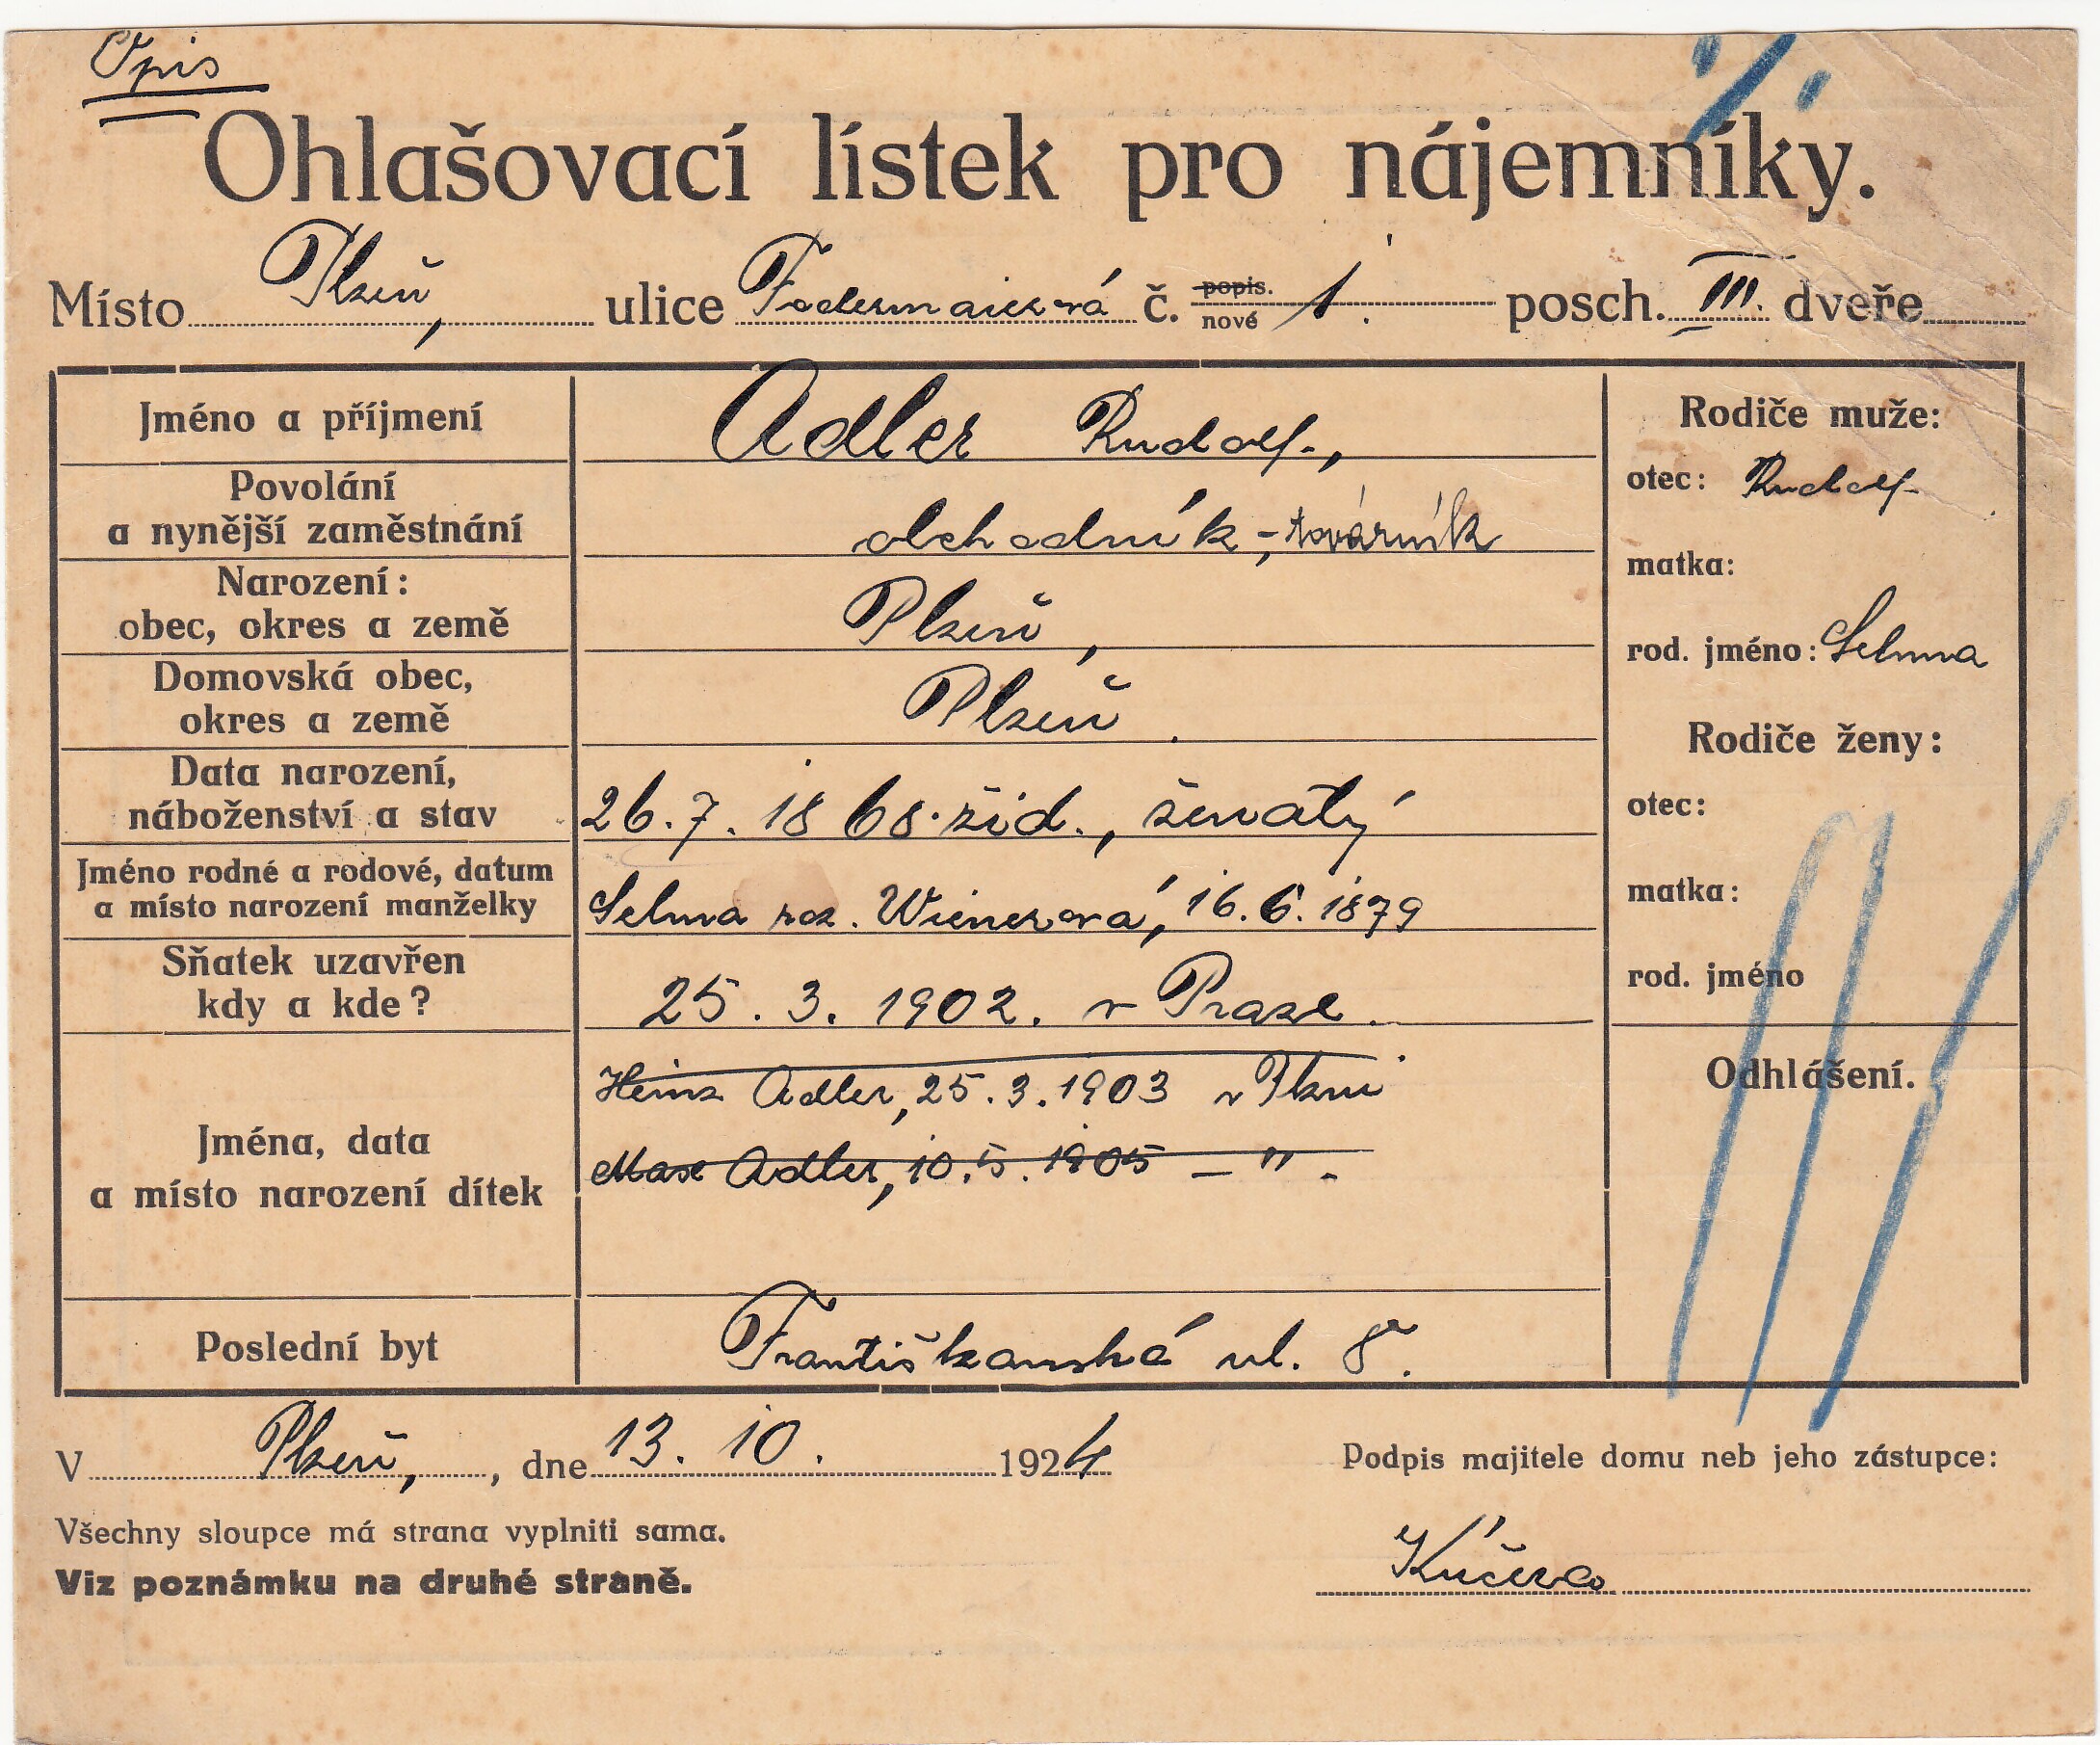 Opis
Ohlašovací lístek pro nájemníky.
Místo Plzeň, ulice Fodermaierová č. popis. nové 1. posch. III. dveře
Jméno a příjmení Adler Rudolf.,
Povolání
a nynější zaměstnání obchodník-, továrník
Narození:
obec, okres a země Plzeň,
Domovská obec,
okres a země Plzeň.
Data narození,
náboženství a stav 26.7.1868. žid., ženatý
Jméno rodné a rodové, datum
a místo narození manželky Selma roz. Wienerová, 16.6.1879
Sňatek uzavřen
kdy a kde? 25. 3. 1902. v Praze.
Jména, data
a místo narození dítek
Heinz Adler, 25.3.1903 v Plzni
Max Adler, 10.5.1905 — " -
Poslední byt Františkanská ul. 8.
Rodiče muže:
otec: Rudolf
matka:
rod. jméno: Selma
Rodiče ženy:
otec:
matka:
rod. jméno
Odhlášení.
V Plzeň, , dne 13. 10. 1924
Podpis majitele domu neb jeho zástupce:
Kučera
Všechny sloupce má strana vyplniti sama.
Viz poznámku na druhé straně.